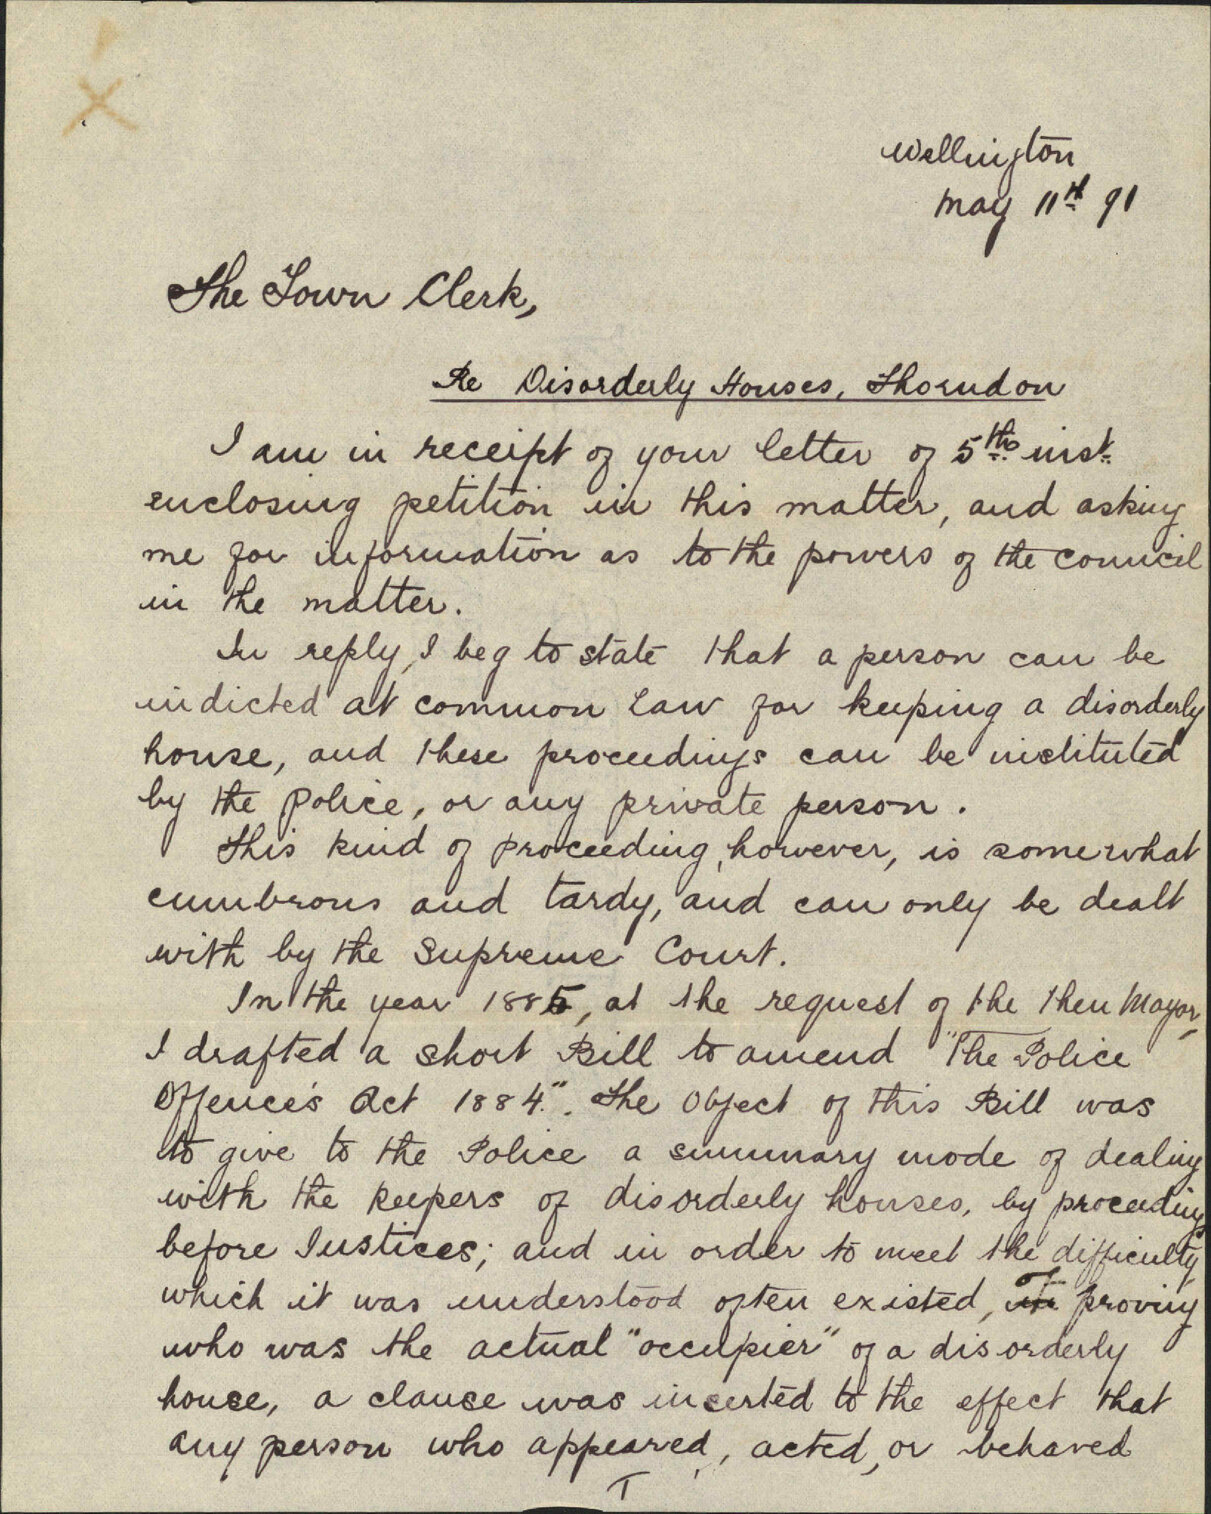 Wellington
May 11th 91
The Town Clerk,
Re Disorderly Houses, Thorndon
I am in receipt of your letter of 5th inst
enclosing petition in this matter, and asking
me for information as to the powers of the Council
in the matter.
In reply, I beg to state that a person can be
indicted at common law for keeping a disorderly
house, and these proceedings can be instituted
by the Police, or any private person.
This kind of proceeding, however, is somewhat
cumbrous and tardy, and can only be dealt
with by the Supreme Court.
In the year 1885, at the request of the then Mayor,
I drafted a short Bill to amend "The Police
Offences Act 1884". The object of this Bill was
to give to the Police a summary mode of dealing
with the keepers of disorderly houses, by proceedings
before Justices; and in order to meet the difficulty
which it was understood often existed, in of proving
who was the actual "occupier" of a disorderly
house, a clause was inserted to the effect that
any person who appeared, acted, or behaved